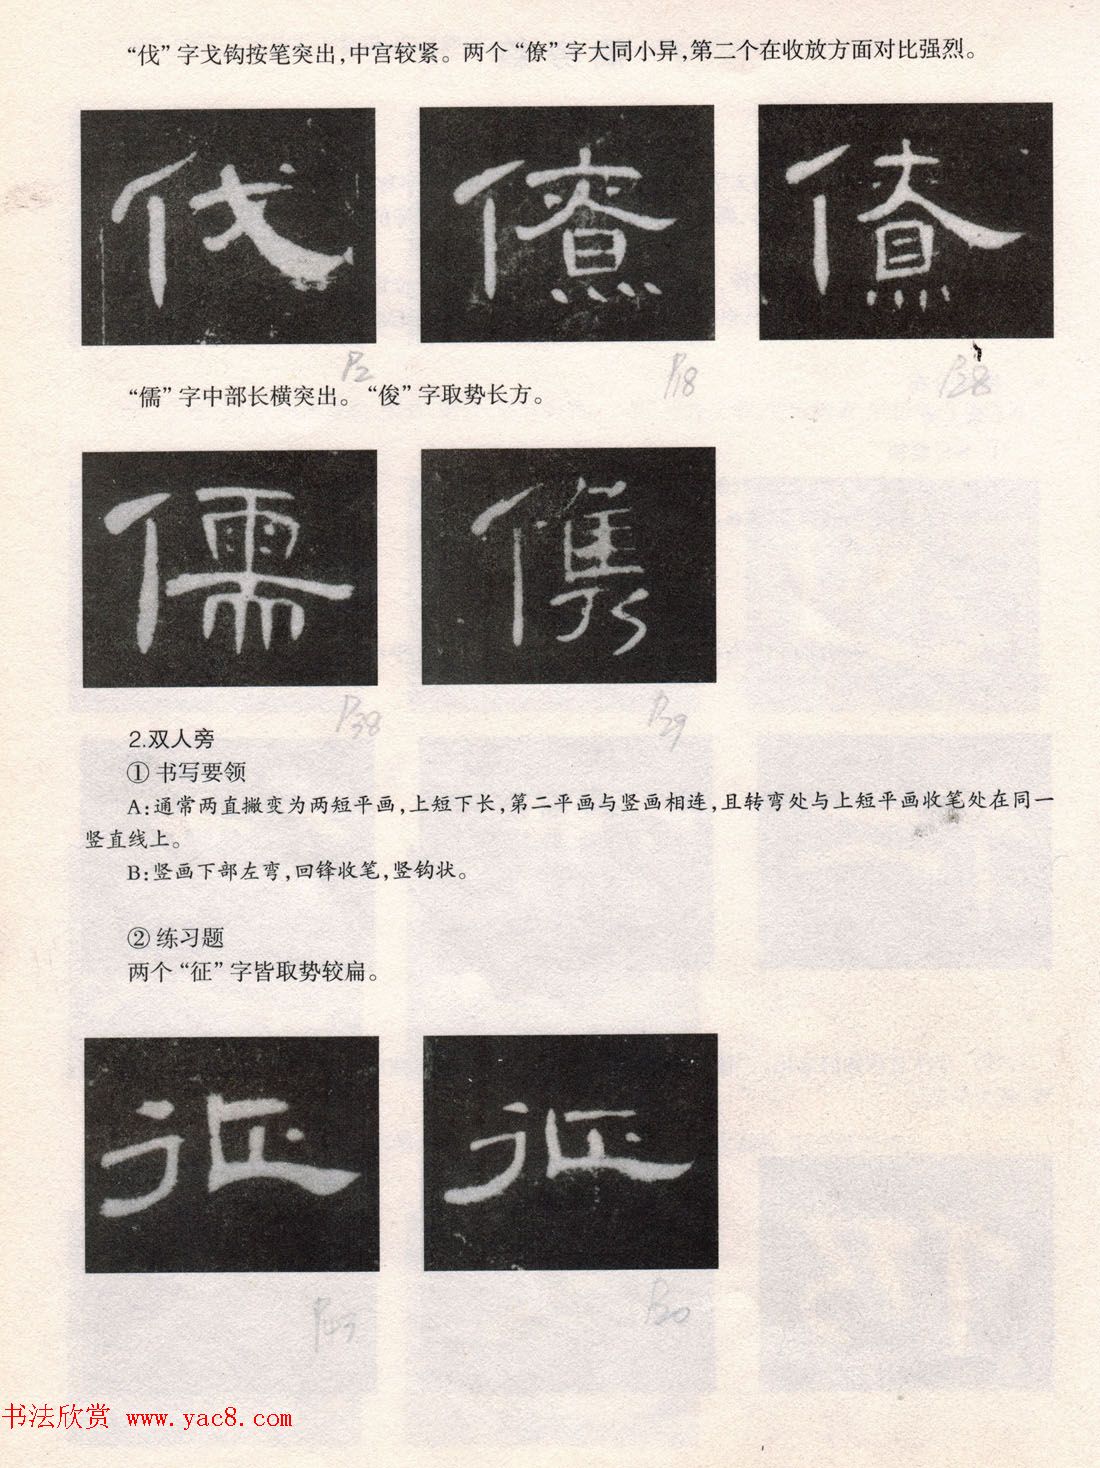 “伐”字戈钩按笔突出,中宫较紧。两个“僚”字大同小异,第二个在收放方面对比强烈。
伐 僚 僚
P2 P18 P28
“儒”字中部长横突出。“俊”字取势长方。
儒 儁
P38 P29
2.双人旁
① 书写要领
A:通常两直撇变为两短平画,上短下长,第二平画与竖画相连,且转弯处与上短平画收笔处在同一
竖直线上。
B:竖画下部左弯,回锋收笔,竖钩状。
② 练习题
两个“征”字皆取势较扁。
征 征
P43 P20
书法欣赏 www.yac8.com